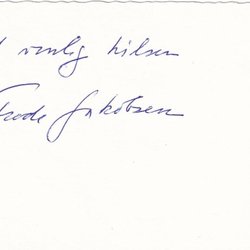 venlig hilsen
Frode Jakobsen